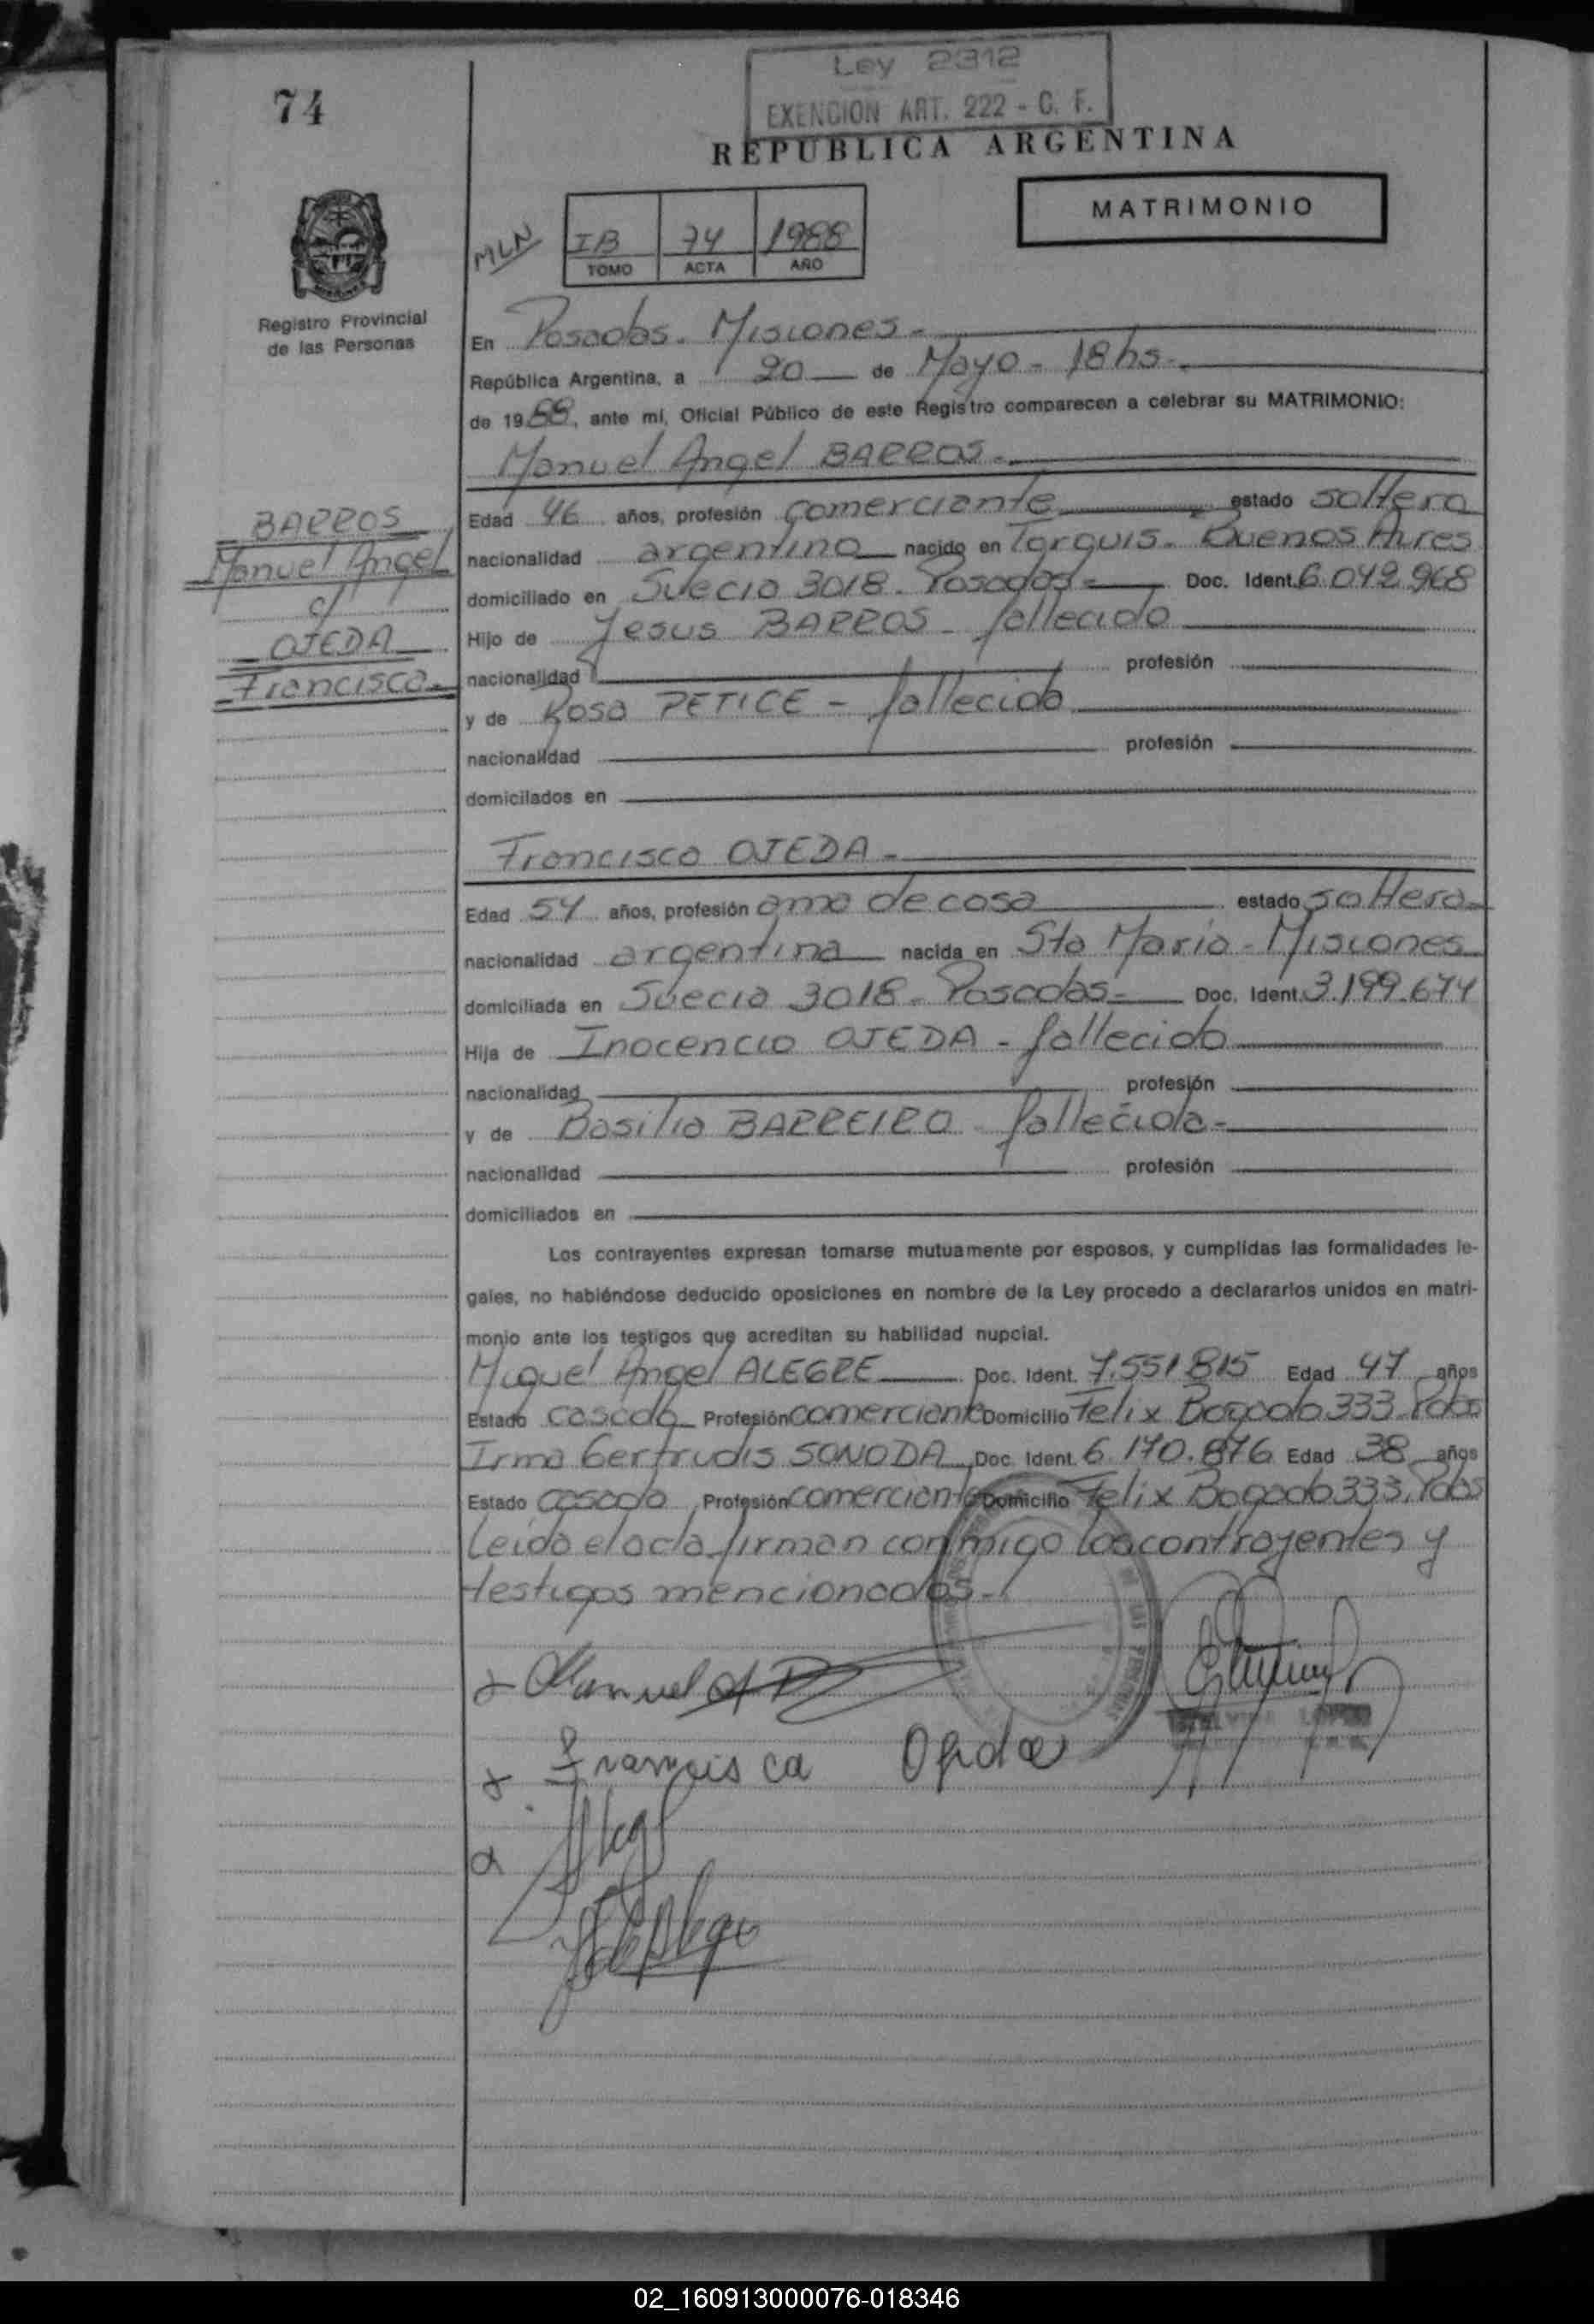 Ley 2312
EXENCION ART. 222 - C. F.
74
REPUBLICA ARGENTINA
MATRIMONIO
MLN
IB 74 1988
TOMO ACTA AÑO
Registro Provincial
de las Personas
En Posadas. Misiones.-
República Argentina, a 20 de Mayo - 18 hs.
de 1988, ante mí, Oficial Público de este Registro comparecen a celebrar su MATRIMONIO:
Manuel Angel BARROS.-
BARROS
Manuel Angel
c/
OJEDA
Francisca.-
Edad 46 años, profesión comerciante estado soltero
nacionalidad argentino nacido en Torquis. Buenos Aires
domiciliado en Suecia 3018. Posadas- Doc. Ident. 6.042.968
Hijo de Jesus BARROS - fallecido
nacionalidad profesión
y de Rosa PETICE - fallecida
nacionalidad profesión
domicilados en
Francisca OJEDA -
Edad 54 años, profesión ama de casa estado soltera-
nacionalidad argentina nacida en Sta Maria - Misiones
domiciliada en Suecia 3018. Posadas- Doc. Ident. 3.199.674
Hija de Inocencio OJEDA - fallecido
nacionalidad profesión
y de Basilia BARREIRO - fallecida-
nacionalidad profesión
domiciliados en
Los contrayentes expresan tomarse mutuamente por esposos, y cumplidas las formalidades le-
gales, no habiéndose deducido oposiciones en nombre de la Ley procedo a declararlos unidos en matri-
monio ante los testigos que acreditan su habilidad nupcial.
Miguel Angel ALEGRE Doc. Ident. 7.551.815 Edad 47 años
Estado casado Profesión comerciante Domicilio Felix Bogado 333. Pdas
Irma Gertrudis SONODA Doc. Ident. 6.170.876 Edad 38 años
Estado casada Profesión comerciante Domicilio Felix Bogado 333. Pdas
Leida el acta firman conmigo los contrayentes y
testigos mencionados.-
Manuel A B
LOPEZ
Francisca Ojeda
02_160913000076-018346